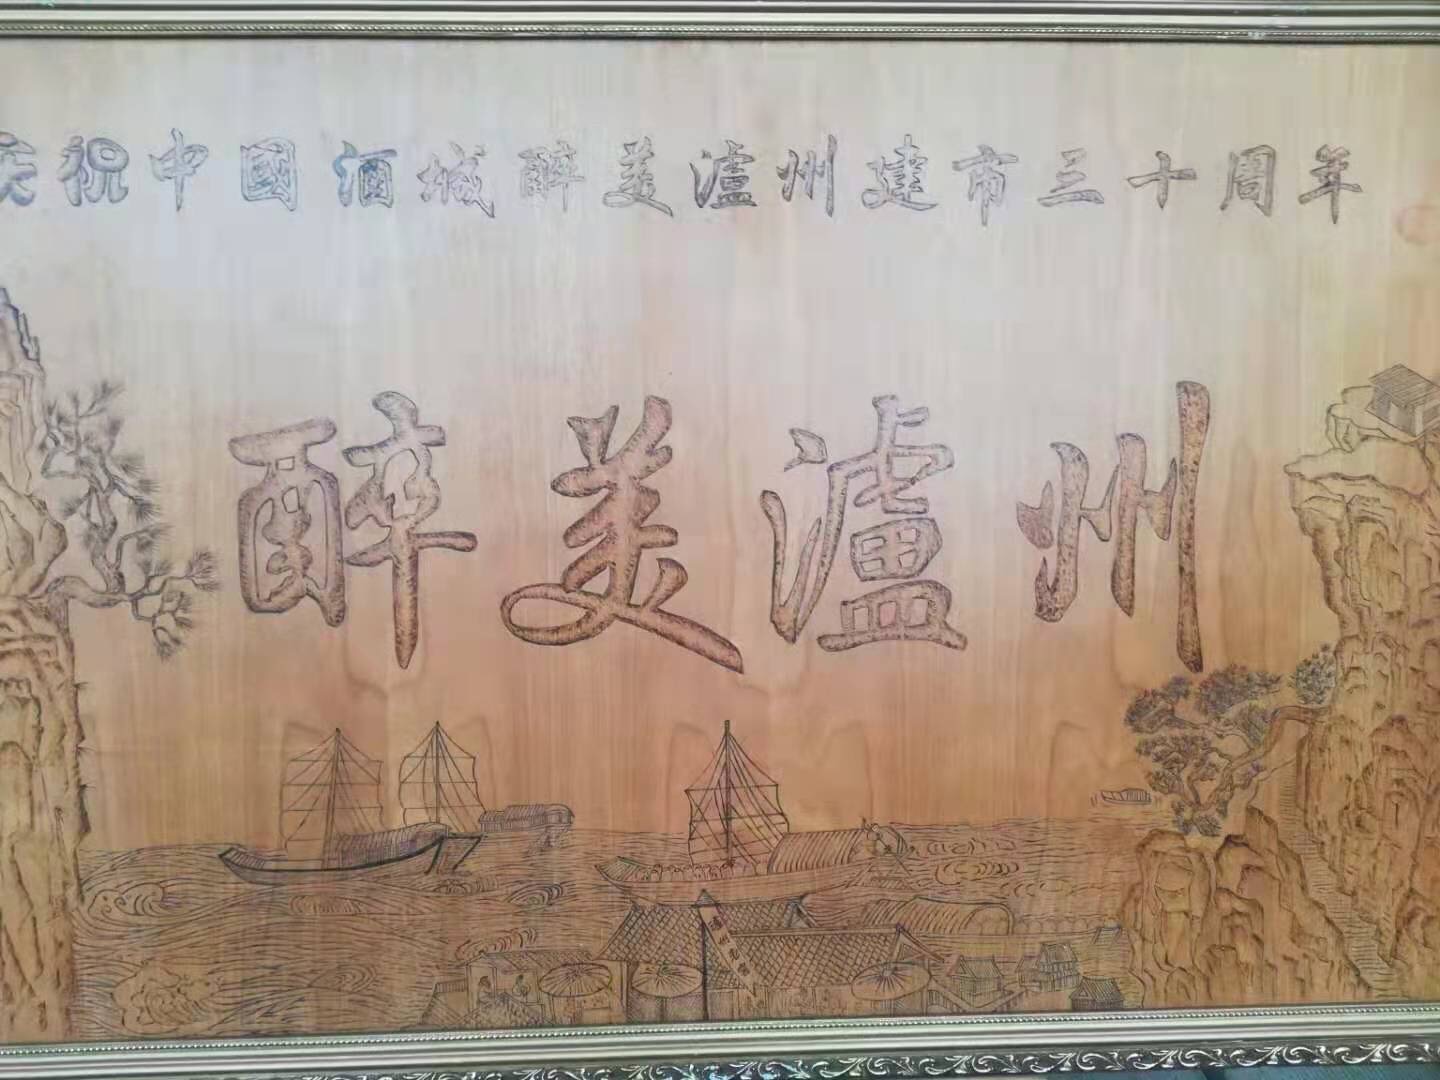 庆祝中國酒城醉美瀘州建市三十周年
醉美瀘州